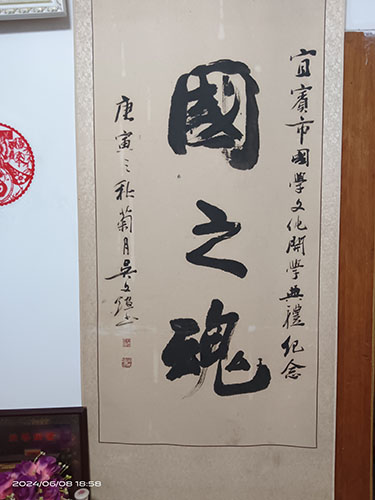 宜賓市國學文化開學典禮紀念
國之魂
庚寅之秋菊月吳文
2024/06/08 18:58